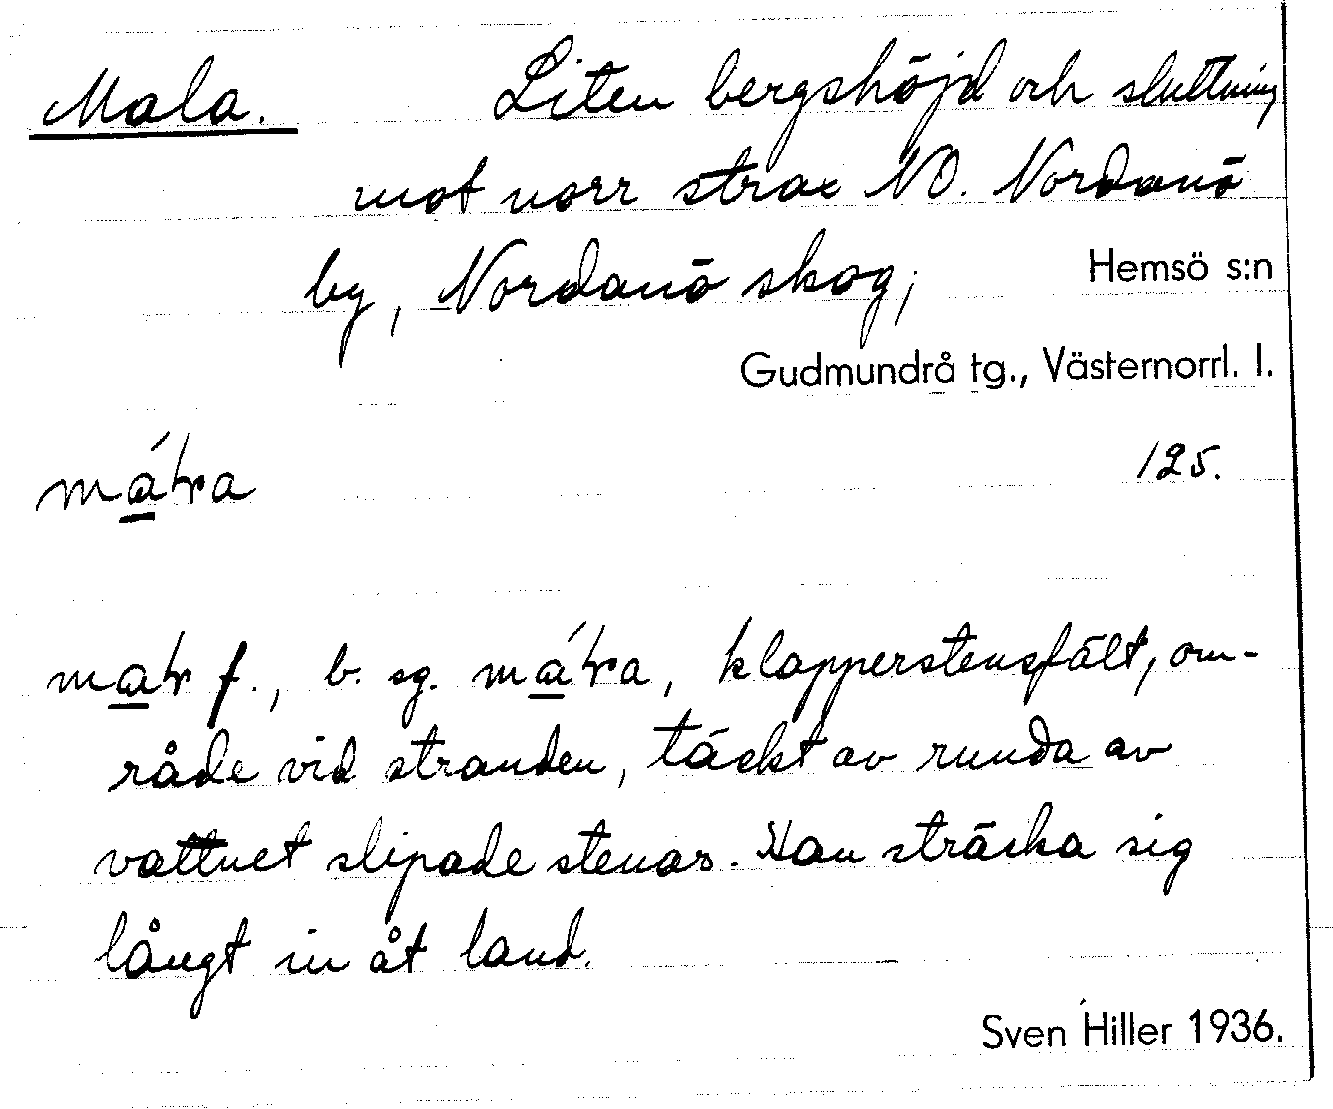 Mala. Liten bergshöjd och sluttning
mot norr strax NO. Nordanö
by, Nordanö skog;
Hemsö s:n
Gudmundrå tg., Västernorrl. l.
125.
f., b. sg. , klapperstensfält, om-
råde vid stranden, täckt av runda av
vattnet slipade stenar. Kan sträcka sig
långt in åt land.
Sven Hiller 1936.